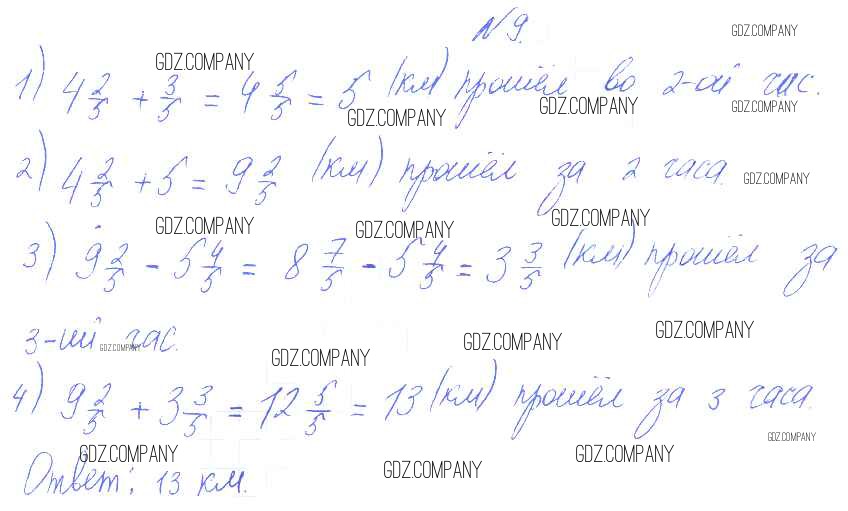 N 9.
GDZ.COMPANY
1) 4 2/5 + 3/5 = 4 5/5 = 5 (км) прошёл во 2-ой час.
GDZ.COMPANY
GDZ.COMPANY
GDZ.COMPANY
GDZ.COMPANY
2) 4 2/5 + 5 = 9 2/5 (км) прошёл за 2 часа.
GDZ.COMPANY
GDZ.COMPANY
GDZ.COMPANY
GDZ.COMPANY
3) 9 2/5 - 5 4/5 = 8 7/5 - 5 4/5 = 3 3/5 (км) прошёл за
3-ий час.
GDZ.COMPANY
GDZ.COMPANY
GDZ.COMPANY
GDZ.COMPANY
4) 9 2/5 + 3 3/5 = 12 5/5 = 13 (км) прошёл за 3 часа.
GDZ.COMPANY
GDZ.COMPANY
GDZ.COMPANY
GDZ.COMPANY
Ответ: 13 км.